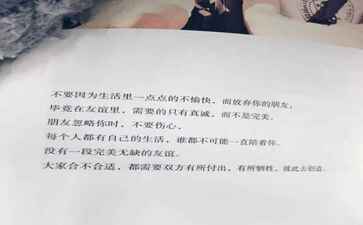 不要因为生活里一点点的不愉快，而放弃你的朋友，
毕竟在友谊里，需要的只有真诚，而不是完美。
朋友忽略你时，不要伤心，
每个人都有自己的生活，谁都不可能一直陪着你。
没有一段完美无缺的友谊。
大家合不合适，都需要双方有所付出，有所牺牲，彼此去创造。